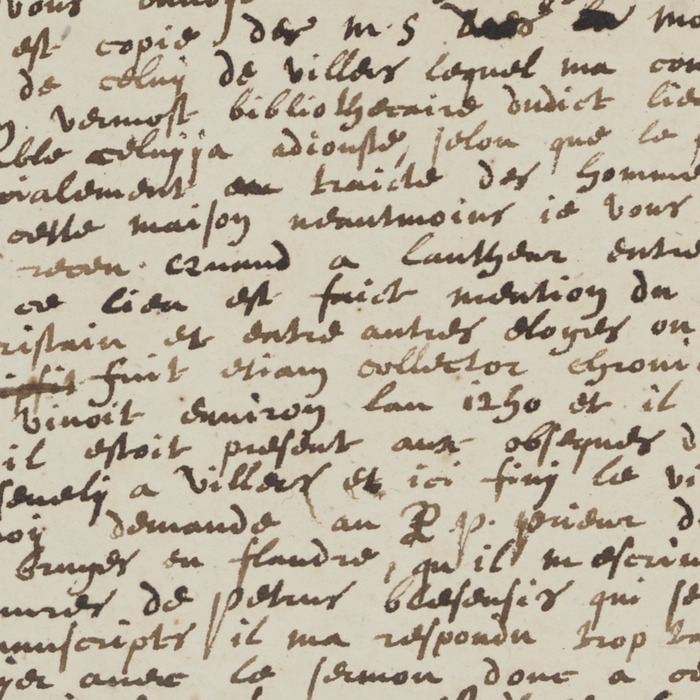 vous
est copie des m.s des mo
de celuy de villers lequel ma com
vermost bibliothecaire dudict lie
ble celuyja adjousté, selon que le
cialement traicté des homme
cette maison neantmoins je vous
recen a lautheur entre
ce lieu est faict mention du
ristain et entre autres eloges on
fuit etiam collector chroni
vivoit environ lan 1250 et il
il estoit present aux obseques d
seveli a villers et ici finy le vi
noy demandé au R p. prieur d
Bruges en flandre, qu'il m escriv
uvres de petrus blesensis qui se
nuscripts il ma respondu trop ta
yer avec le sermon donc a